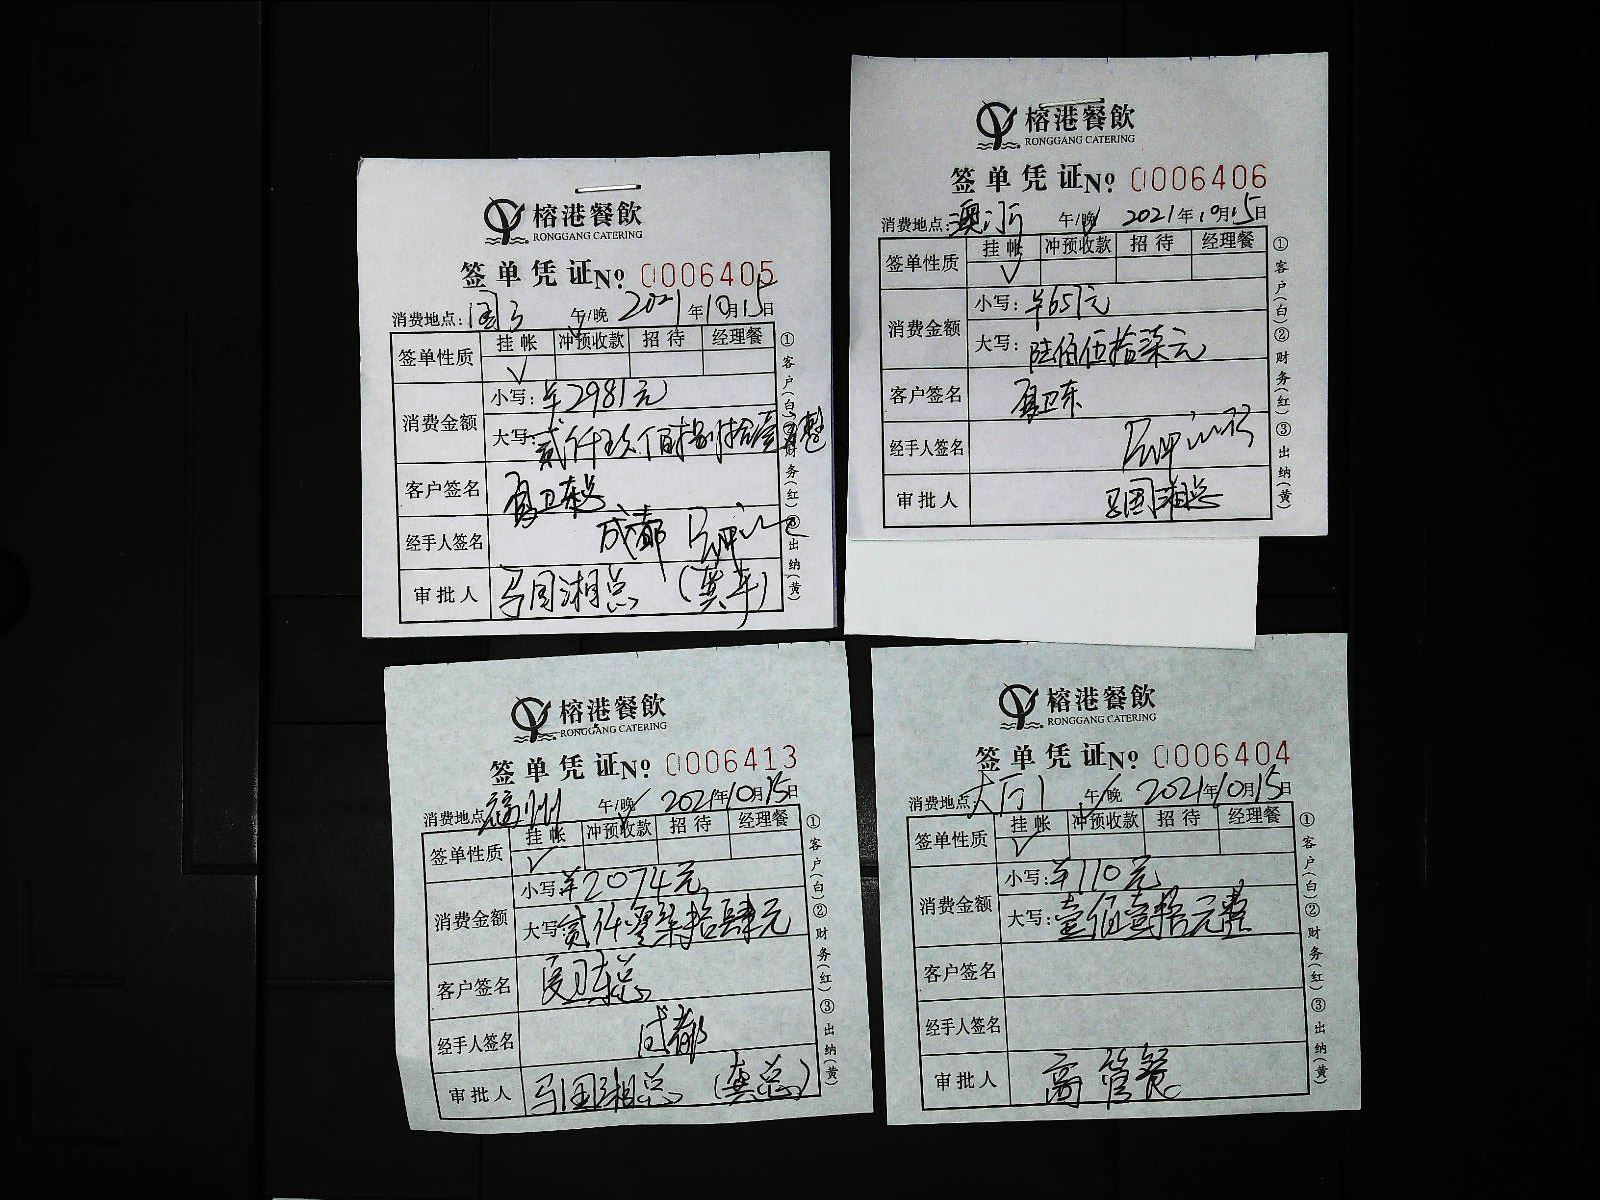 榕港餐飲
RONGGANG CATERING
签单凭证No 0006405
消费地点: 午/晚 2021年10月15日
签单性质 挂帐 冲预收款 招待 经理餐
✓
消费金额 小写: ¥2981元
大写: 贰仟玖佰捌拾壹元整
客户签名 夏卫东总
经手人签名 成都
审批人 马国湘总
①客户(白)②财务(红)③出纳(黄)
榕港餐飲
RONGGANG CATERING
签单凭证No 0006406
消费地点: 澳门厅 午/晚 2021年10月15日
签单性质 挂帐 冲预收款 招待 经理餐
✓
消费金额 小写: ¥657元
大写: 陆佰伍拾柒元
客户签名 夏卫东
经手人签名
审批人 马国湘总
①客户(白)②财务(红)③出纳(黄)
榕港餐飲
RONGGANG CATERING
签单凭证No 0006413
消费地点 福州 午/晚 2021年10月15日
签单性质 挂帐 冲预收款 招待 经理餐
✓
消费金额 小写: ¥2074元
大写 贰仟零柒拾肆元
客户签名 夏卫东总
经手人签名 成都
审批人 马国湘总 (龚总)
①客户(白)②财务(红)③出纳(黄)
榕港餐飲
RONGGANG CATERING
签单凭证No 0006404
消费地点 大厅1 午/晚 2021年10月15日
签单性质 挂帐 冲预收款 招待 经理餐
✓
消费金额 小写: ¥110元
大写: 壹佰壹拾元整
客户签名
经手人签名
审批人 高管餐
①客户(白)②财务(红)③出纳(黄)